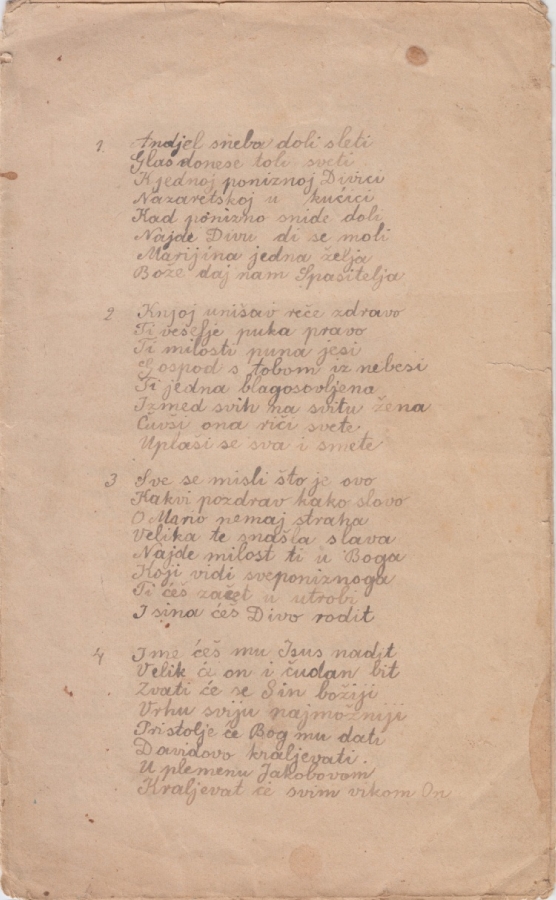 1. Andjel sneba doli sleti
Glas donese toli sveti
K jednoj poniznoj Divici
Nazaretskoj u kućici
Kad ponizno snide doli
Najde Divu di se moli
Marijina jedna želja
Bože daj nam Spasitelja
2 Knjoj unišav reče zdravo
Ti veselje puka pravo
Ti milosti puna jesi
Gospod s tobom iz nebesi
Ti jedna blagosovljena
Izmed svih na svitu žena
Čuvši ona riči svete
Uplaši se sva i smete
3 Sve se misli što je ovo
Kakvi pozdrav kako slovo
O Mario nemaj straha
Velika te snašla slava
Najde milost ti u Boga
Koji vidi sveponiznoga
Ti ćeš začet u utrobi
I sina ćeš Divo rodit
4 Ime ćeš mu Isus nadit
Velik će on i čudan bit
Zvati će se Sin božiji
Vrhu sviju najmožniji
Pristolje će Bog mu dati
Davidovo kraljevati.
U plemenu Jakobovom
Kraljevat će svim vikom On